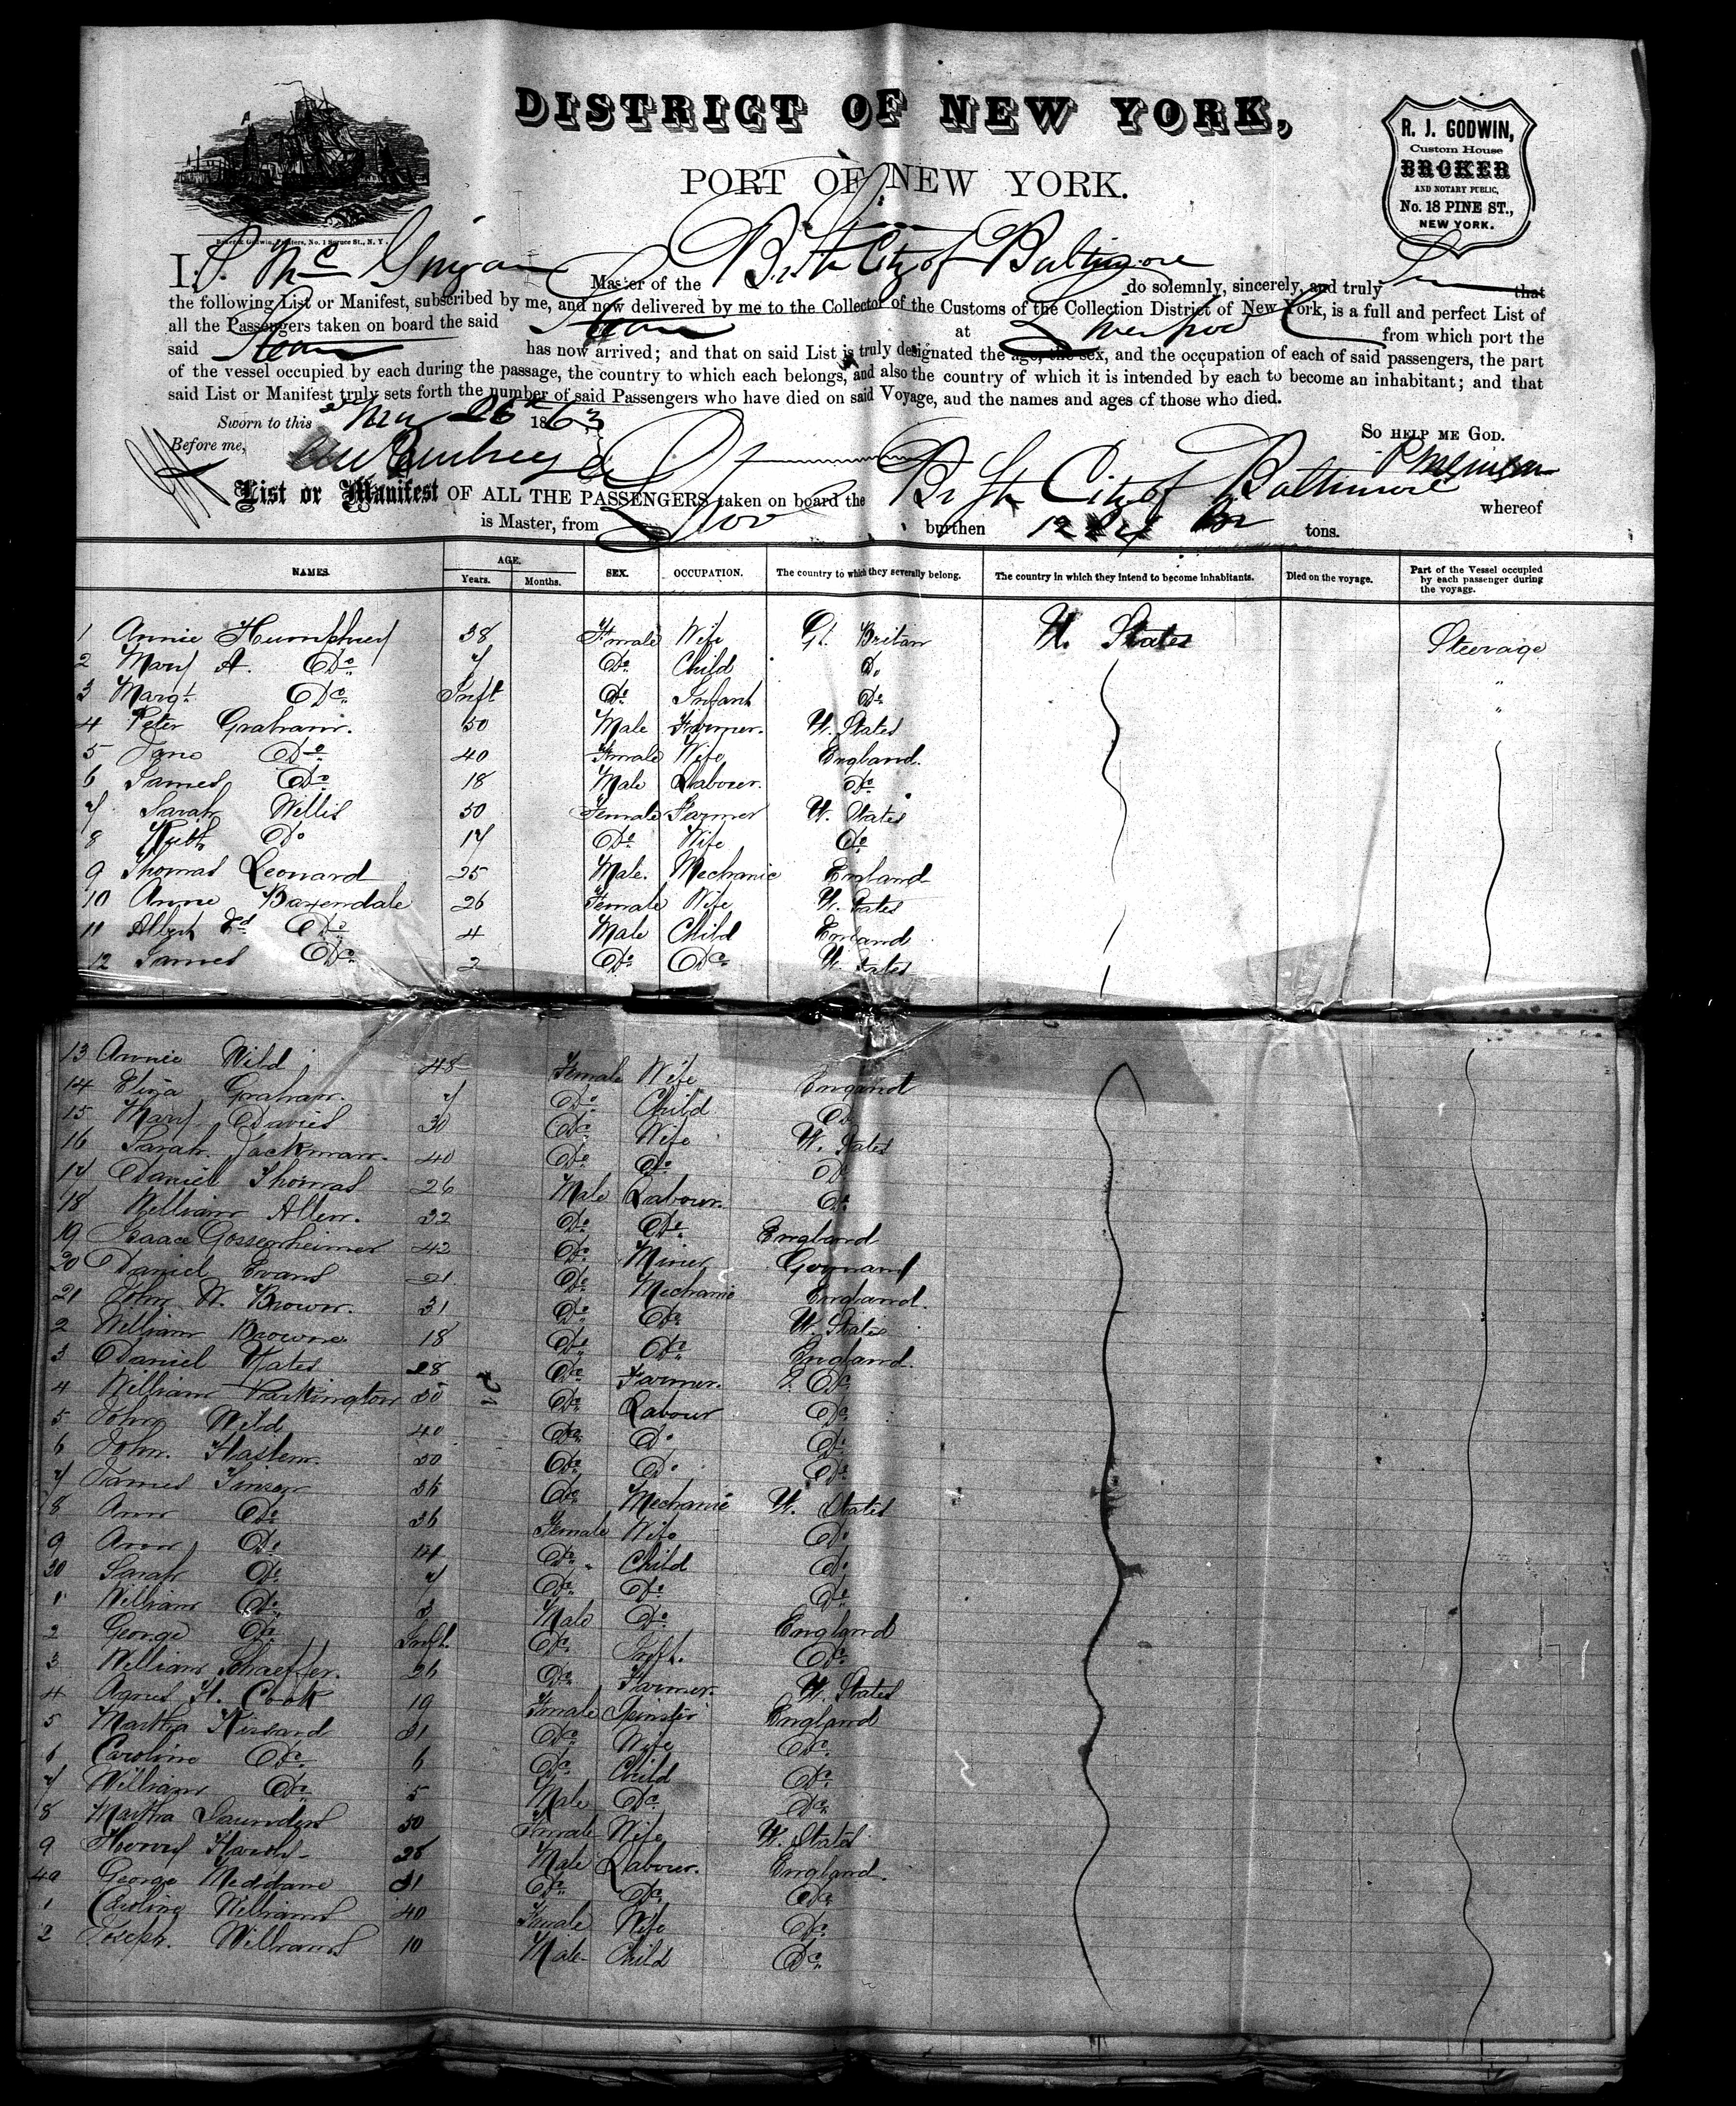 DISTRICT OF NEW YORK,
PORT OF NEW YORK.
R. J. GODWIN,
Custom House
BROKER
AND NOTARY PUBLIC,
No. 18 PINE ST.,
NEW YORK.
Baker & Godwin, Printers, No. 1 Spruce St., N. Y.
I, Master of the Br Str City of Baltimore do solemnly, sincerely, and truly that
the following List or Manifest, subscribed by me, and now delivered by me to the Collector of the Customs of the Collection District of New York, is a full and perfect List of
all the Passengers taken on board the said Steamer at Liverpool from which port the
said Steamer has now arrived; and that on said List is truly designated the age, the sex, and the occupation of each of said passengers, the part
of the vessel occupied by each during the passage, the country to which each belongs, and also the country of which it is intended by each to become an inhabitant; and that
said List or Manifest truly sets forth the number of said Passengers who have died on said Voyage, and the names and ages of those who died.
Sworn to this 26th 1863
So help me God.
Before me,
List or Manifest OF ALL THE PASSENGERS taken on board the Br Str City of Baltimore whereof
is Master, from burthen tons.
NAMES. AGE. Years. Months. SEX. OCCUPATION. The country to which they severally belong. The country in which they intend to become inhabitants. Died on the voyage. Part of the Vessel occupied by each passenger during the voyage.
1 Annie Humphrey 38 Female Wife Gt. Britan U. States Steerage
2 Mary A. Do 7 Do Child Do "
3 Margt. Do Inft Do Infant Do "
4 Peter Graham. 50 Male Farmer. U. States
5 Jane Do 40 Female Wife England.
6 James Do 18 Male Labourer. Do
7 Sarah Willis 50 Female Farmer U. States
8 Ruth Do 17 Do Wife Do
9 Thomas Leonard 25 Male. Mechanic England
10 Annie Baxendale 26 Female Wife U. States
11 Albert Ed Do 4 Male Child England
12 James Do 2 Do Do U. States
13 Annie Wild 48 Female Wife England
14 Eliza Graham. 7 Do Child Do
15 Mary Davies 30 Do Wife U. States
16 Sarah Jackman. 40 Do Do Do
17 Daniel Thomas 26 Male Labour. Do
18 William Allen. 32 Do Do England
19 Isaac Gossenheimer 42 Do Miner Germany
20 Daniel Evans 21 Do Mechanic England.
21 John W. Brown. 31 Do Do U. States
2 William Browne 18 Do Do England.
3 Daniel Yates 28 Do Farmer. Do
4 William Parkington 50 Do Labour Do
5 John Wild 40 Do Do Do
6 John. Haslem. 50 Do Do Do
7 James Simson 36 Do Mechanic U. States
8 Ann Do 36 Female Wife Do
9 Ann Do 14 Do Child Do
30 Sarah Do 7 Do Do Do
1 William Do 3 Male Do England
2 George Do Inft. Do Inft. Do
3 William Schaeffer. 26 Do Farmer. U. States
4 Agnes H. Cook 19 Female Spinster England
5 Martha 31 Do Wife Do
6 Caroline Do 6 Do Child Do
7 William Do 5 Male Do Do
8 Martha Saunders 50 Female Wife U. States
9 28 Male Labour. England.
40 George 31 Do Do Do
1 Caroline Williams 40 Female Wife Do
2 Joseph. Williams 10 Male Child Do